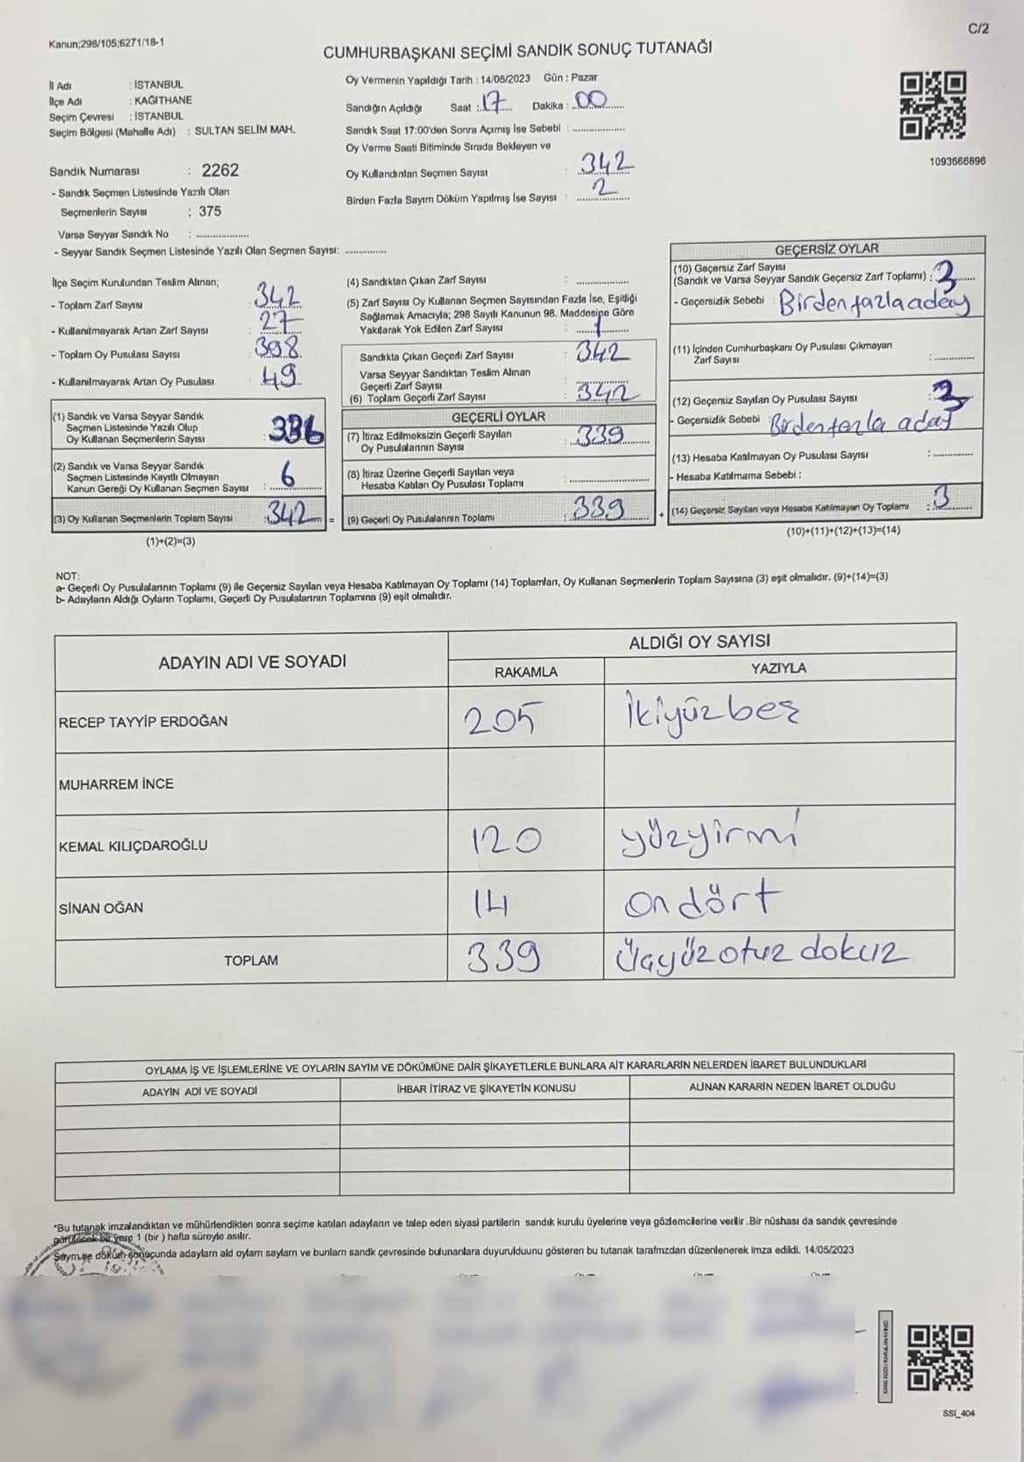 Kanun;298/105;6271/18-1
C/2
CUMHURBAŞKANI SEÇİMİ SANDIK SONUÇ TUTANAĞI
İl Adı : İSTANBUL
İlçe Adı : KAĞITHANE
Seçim Çevresi : İSTANBUL
Seçim Bölgesi (Mahalle Adı) : SULTAN SELİM MAH.
Sandık Numarası : 2262
- Sandık Seçmen Listesinde Yazılı Olan
Seçmenlerin Sayısı : 375
Varsa Seyyar Sandık No : ..............
- Seyyar Sandık Seçmen Listesinde Yazılı Olan Seçmen Sayısı: ..............
Oy Vermenin Yapıldığı Tarih : 14/05/2023 Gün : Pazar
Sandığın Açıldığı Saat : 17 Dakika : 00
Sandık Saat 17:00'den Sonra Açımış İse Sebebi : ..............
Oy Verme Saati Bitiminde Sırada Bekleyen ve
Oy Kullandırılan Seçmen Sayısı : 342
Birden Fazla Sayım Döküm Yapılmış İse Sayısı : 2
1093666896
İlçe Seçim Kurulundan Teslim Alınan;
- Toplam Zarf Sayısı : 342
- Kullanılmayarak Artan Zarf Sayısı : 27
- Toplam Oy Pusulası Sayısı : 398
- Kullanılmayarak Artan Oy Pusulası : 49
(1) Sandık ve Varsa Seyyar Sandık
Seçmen Listesinde Yazılı Olup
Oy Kullanan Seçmenlerin Sayısı : 336
(2) Sandık ve Varsa Seyyar Sandık
Seçmen Listesinde Kayıtlı Olmayan
Kanun Gereği Oy Kullanan Seçmen Sayısı : 6
(3) Oy Kullanan Seçmenlerin Toplam Sayısı : 342 =
(1)+(2)=(3)
(4) Sandıktan Çıkan Zarf Sayısı : ..............
(5) Zarf Sayısı Oy Kullanan Seçmen Sayısından Fazla İse, Eşitliği
Sağlamak Amacıyla; 298 Sayılı Kanunun 98. Maddesine Göre
Yakılarak Yok Edilen Zarf Sayısı :
Sandıkta Çıkan Geçerli Zarf Sayısı : 342
Varsa Seyyar Sandıktan Teslim Alınan
Geçerli Zarf Sayısı : ..............
(6) Toplam Geçerli Zarf Sayısı : 342
GEÇERLİ OYLAR
(7) İtiraz Edilmeksizin Geçerli Sayılan
Oy Pusulalarının Sayısı : 339
(8) İtiraz Üzerine Geçerli Sayılan veya
Hesaba Katılan Oy Pusulası Toplamı : ..............
(9) Geçerli Oy Pusulalarının Toplamı : 339 +
GEÇERSİZ OYLAR
(10) Geçersiz Zarf Sayısı
(Sandık ve Varsa Seyyar Sandık Geçersiz Zarf Toplamı) : 3
- Geçersizlik Sebebi : Birden fazla aday
(11) İçinden Cumhurbaşkanı Oy Pusulası Çıkmayan
Zarf Sayısı : ..............
(12) Geçersiz Sayılan Oy Pusulası Sayısı : 3
- Geçersizlik Sebebi : Birden fazla aday
(13) Hesaba Katılmayan Oy Pusulası Sayısı : ..............
- Hesaba Katılmama Sebebi :
(14) Geçersiz Sayılan veya Hesaba Katılmayan Oy Toplamı : 3
(10)+(11)+(12)+(13)=(14)
NOT:
a- Geçerli Oy Pusulalarının Toplamı (9) ile Geçersiz Sayılan veya Hesaba Katılmayan Oy Toplamı (14) Toplamları, Oy Kullanan Seçmenlerin Toplam Sayısına (3) eşit olmalıdır. (9)+(14)=(3)
b- Adayların Aldığı Oyların Toplamı, Geçerli Oy Pusulalarının Toplamına (9) eşit olmalıdır.
ADAYIN ADI VE SOYADI
ALDIĞI OY SAYISI
RAKAMLA YAZIYLA
RECEP TAYYİP ERDOĞAN 205 ikiyüzbeş
MUHARREM İNCE
KEMAL KILIÇDAROĞLU 120 yüzyirmi
SİNAN OĞAN 14 on dört
TOPLAM 339 üçyüzotuz dokuz
OYLAMA İŞ VE İŞLEMLERİNE VE OYLARIN SAYIM VE DÖKÜMÜNE DAİR ŞİKAYETLERLE BUNLARA AİT KARARLARIN NELERDEN İBARET BULUNDUKLARI
ADAYIN ADI VE SOYADI İHBAR İTİRAZ VE ŞİKAYETİN KONUSU ALINAN KARARIN NEDEN İBARET OLDUĞU
*Bu tutanak imzalandıktan ve mühürlendikten sonra seçime katılan adayların ve talep eden siyasi partilerin sandık kurulu üyelerine veya gözlemcilerine verilir .Bir nüshası da sandık çevresinde
görülecek bir yere 1 (bir ) hafta süreyle asılır.
Saym ve döküm sonucunda adaylarn ald oylarn saylarn ve bunlarn sandk çevresinde bulunanlara duyurulduunu gösteren bu tutanak tarafmzdan düzenlenerek imza edildi. 14/05/2023
SSI_404